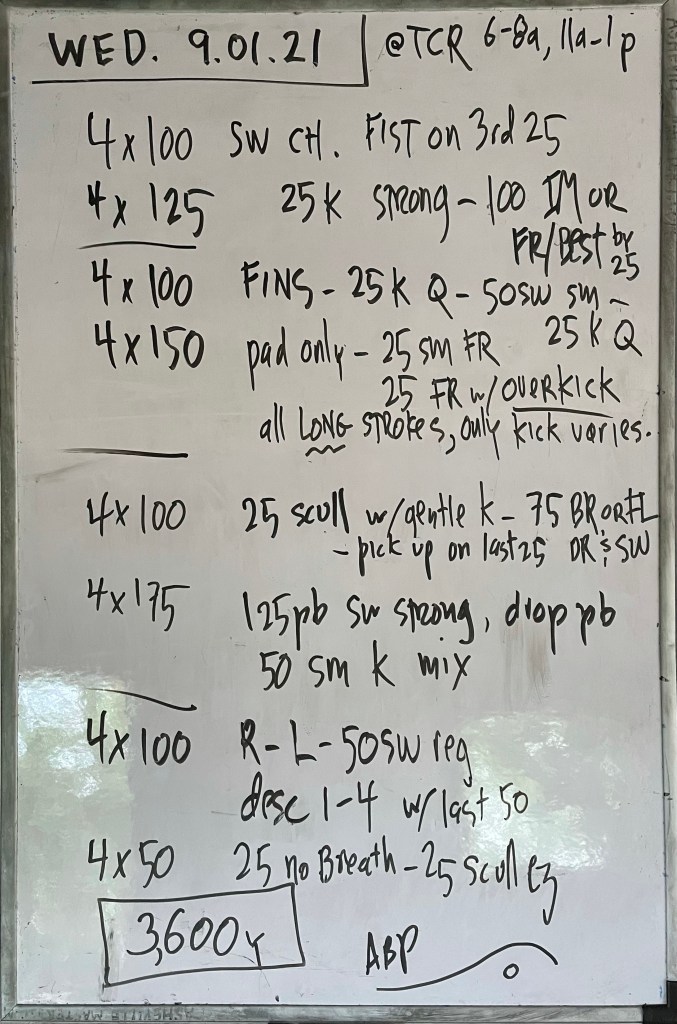 WED. 9.01.21 @TCR 6-8a, 11a-1p
4x100 SW CH. FIST on 3rd 25
4x 125 25k strong - 100 IM OR
FR/BEST by 25
4x100 FINS - 25k Q - 50sw sm -
25k Q
4x150 pad only - 25 sm FR
25 FR w/OVERKICK
all LONG STROKES, only kick varies.
4x100 25 scull w/gentle k - 75 BR or FL
- pick up on last 25 DR & SW
4x175 125pb sw strong, drop pb
50 sm k mix
4x100 R-L-50sw reg
desc 1-4 w/last 50
4x50 25 no Breath - 25 scull ez
3,600y
ABP